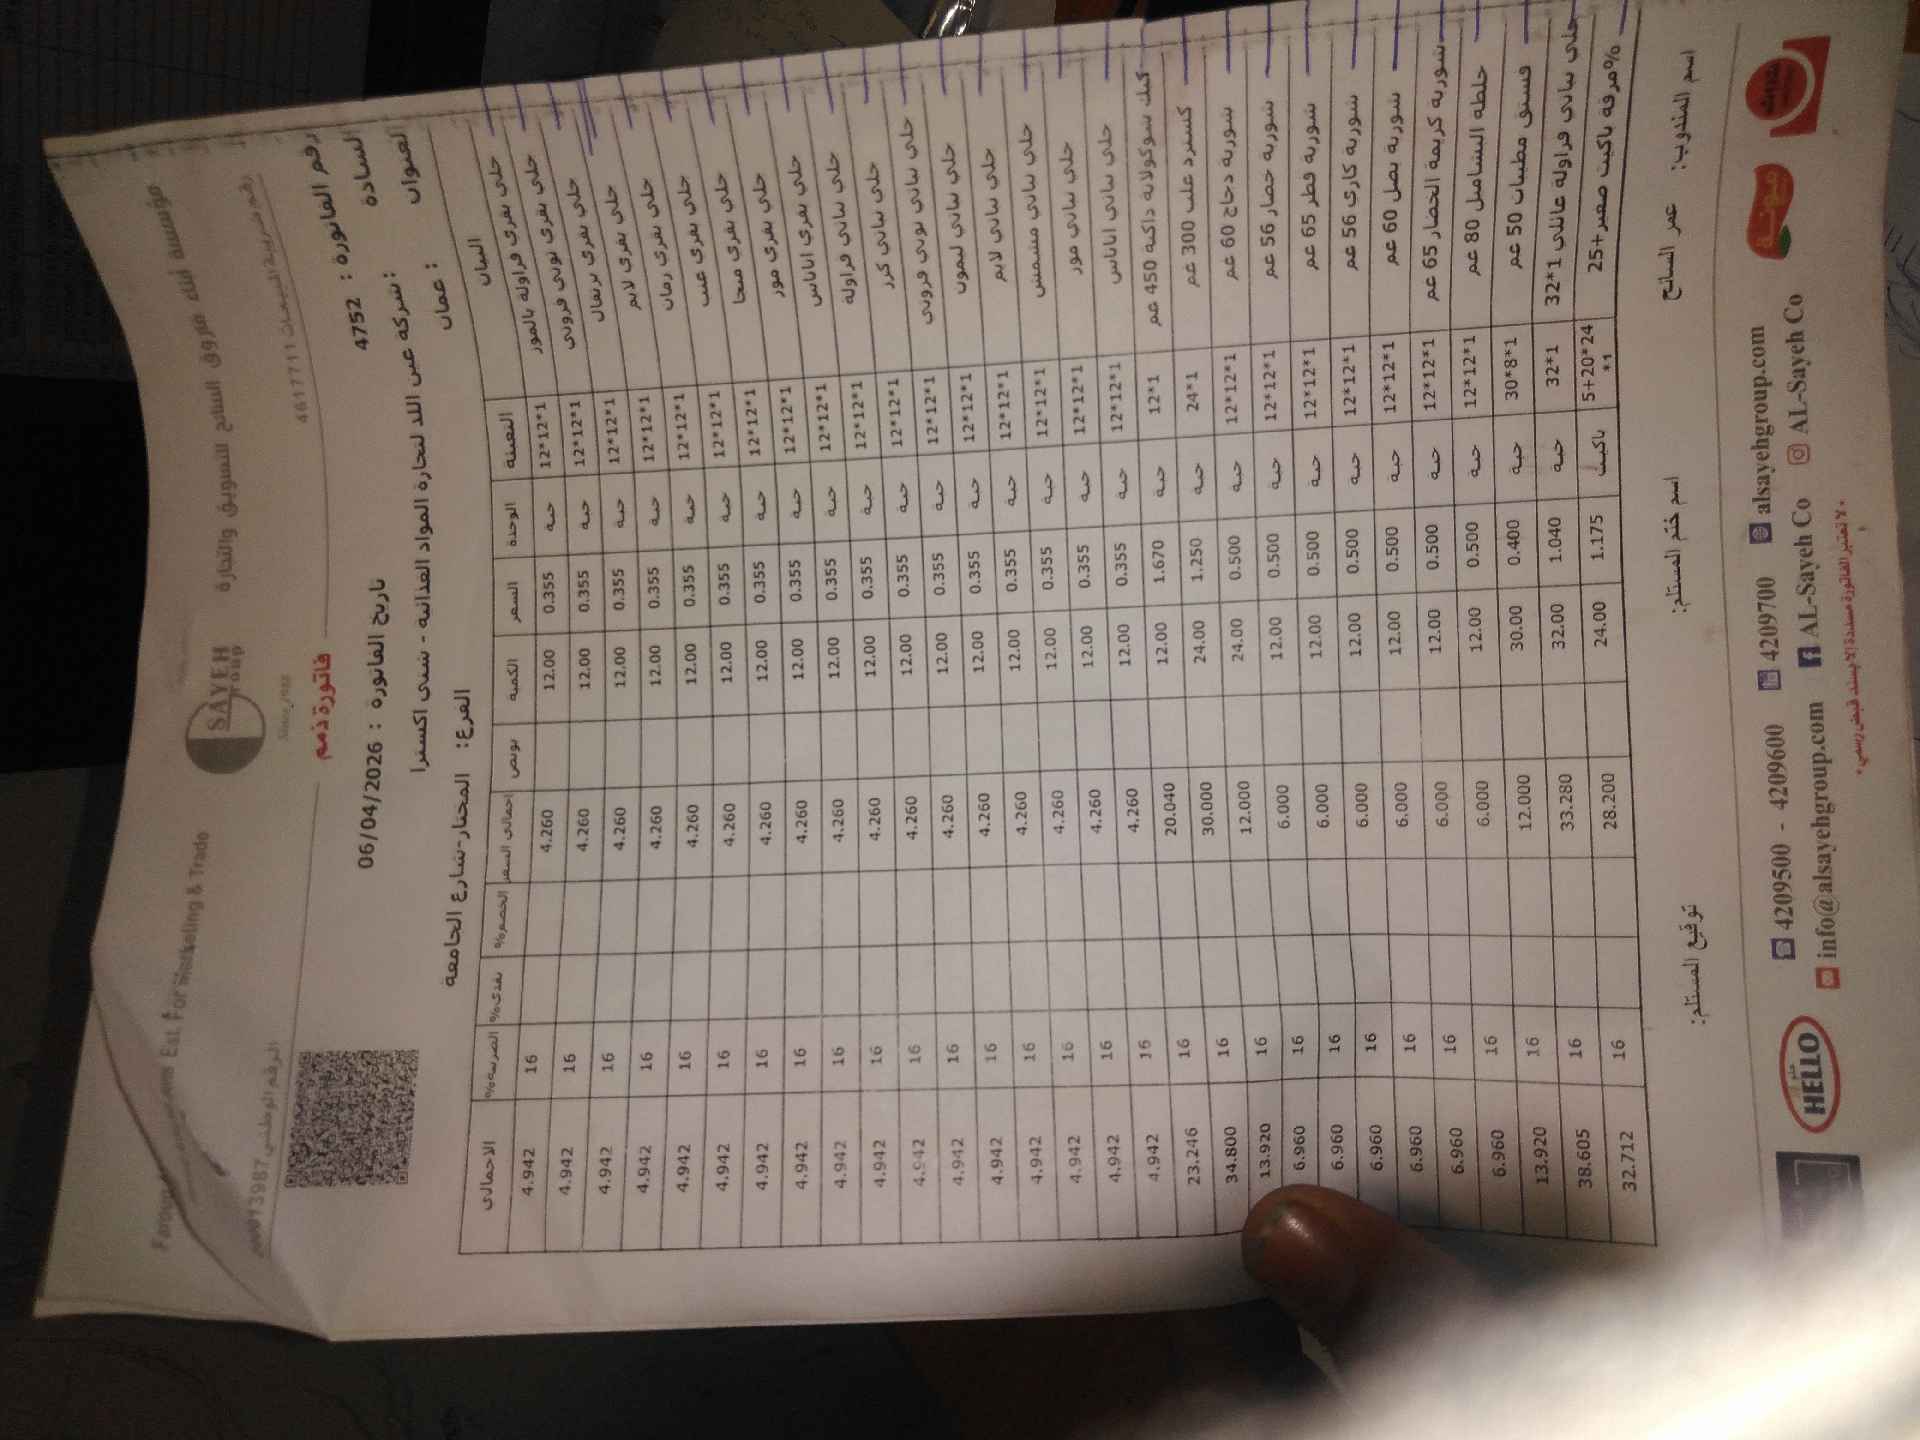 مؤسسة أبناء فاروق السايح للتسويق والتجارة
SAYEH
GROUP
Since 1988
Est. For Marketing & Trade
46177711
الرقم الوطني
فاتورة ذمم
رقم الفاتورة : 4752
تاريخ الفاتورة : 06/04/2026
السادة : شركة عين اللد لتجارة المواد الغذائية - شنى اكسترا
العنوان : عمان
الفرع: المختار-شارع الجامعة
البيان التعبئة الوحدة السعر الكمية بونص اجمالي السعر الخصم% نقدي% الضريبة% الاجمالي
حلى بقري فراولة بالموز 12*12*1 حبة 0.355 12.00 4.260 16 4.942
حلى بقري توتي فروتي 12*12*1 حبة 0.355 12.00 4.260 16 4.942
حلى بقري برتقال 12*12*1 حبة 0.355 12.00 4.260 16 4.942
حلى بقري لايم 12*12*1 حبة 0.355 12.00 4.260 16 4.942
حلى بقري رمان 12*12*1 حبة 0.355 12.00 4.260 16 4.942
حلى بقري عنب 12*12*1 حبة 0.355 12.00 4.260 16 4.942
حلى بقري منجا 12*12*1 حبة 0.355 12.00 4.260 16 4.942
حلى بقري موز 12*12*1 حبة 0.355 12.00 4.260 16 4.942
حلى بقري اناناس 12*12*1 حبة 0.355 12.00 4.260 16 4.942
حلى نباتي فراولة 12*12*1 حبة 0.355 12.00 4.260 16 4.942
حلى نباتي كرز 12*12*1 حبة 0.355 12.00 4.260 16 4.942
حلى نباتي توتي فروتي 12*12*1 حبة 0.355 12.00 4.260 16 4.942
حلى نباتي ليمون 12*12*1 حبة 0.355 12.00 4.260 16 4.942
حلى نباتي لايم 12*12*1 حبة 0.355 12.00 4.260 16 4.942
حلى نباتي مشمش 12*12*1 حبة 0.355 12.00 4.260 16 4.942
حلى نباتي موز 12*12*1 حبة 0.355 12.00 4.260 16 4.942
حلى نباتي اناناس 12*12*1 حبة 0.355 12.00 4.260 16 4.942
كيك شوكولاته داكنة 450 غم 12*1 حبة 1.670 12.00 20.040 16 23.246
كسترد علب 300 غم 24*1 حبة 1.250 24.00 30.000 16 34.800
شوربة دجاج 60 غم 12*12*1 حبة 0.500 24.00 12.000 16 13.920
شوربة خضار 56 غم 12*12*1 حبة 0.500 12.00 6.000 16 6.960
شوربة فطر 65 غم 12*12*1 حبة 0.500 12.00 6.000 16 6.960
شوربة كاري 56 غم 12*12*1 حبة 0.500 12.00 6.000 16 6.960
شوربة بصل 60 غم 12*12*1 حبة 0.500 12.00 6.000 16 6.960
شوربة كريمة الخضار 65 غم 12*12*1 حبة 0.500 12.00 6.000 16 6.960
خلطة البشاميل 80 غم 12*12*1 حبة 0.500 12.00 6.000 16 6.960
فستق مطيبات 50 غم 30*8*1 حبة 0.400 30.00 12.000 16 13.920
حلى نباتي فراولة عائلي 1*32 32*1 حبة 1.040 32.00 33.280 16 38.605
%مرقة باكيت صغير+25 5+20*24*1 باكيت 1.175 24.00 28.200 16 32.712
اسم المندوب: عمر السايح
اسم ختم المستلم:
توقيع المستلم:
HELLO
4209500 - 4209600
4209700
alsayehgroup.com
info@alsayehgroup.com
AL-Sayeh Co
AL-Sayeh Co
* لا تعتبر الفاتورة مسددة الا بسند قبض رسمي *